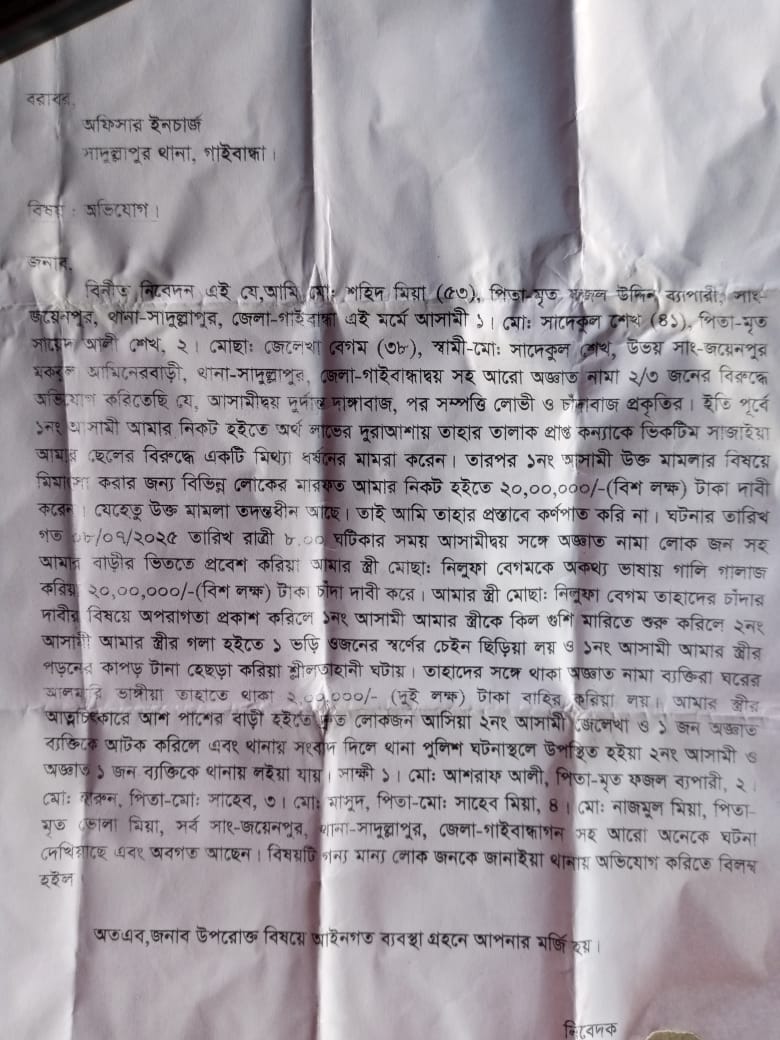 বরাবর,
অফিসার ইনচার্জ
সাদুল্লাপুর থানা, গাইবান্ধা।
বিষয় : অভিযোগ।
জনাব,
বিনীত নিবেদন এই যে,আমি মো: শহিদ মিয়া (৫৩), পিতা-মৃত ফজল উদ্দিন ব্যাপারী, সাং-
জয়েনপুর, থানা-সাদুল্লাপুর, জেলা-গাইবান্ধা এই মর্মে আসামী ১। মো: সাদেকুল শেখ (৪১), পিতা-মৃত
সায়েদ আলী শেখ, ২। মোছা: জেলেখা বেগম (৩৮), স্বামী-মো: সাদেকুল শেখ, উভয় সাং-জয়েনপুর
আমিনেরবাড়ী, থানা-সাদুল্লাপুর, জেলা-গাইবান্ধাদ্বয় সহ আরো অজ্ঞাত নামা ২/৩ জনের বিরুদ্ধে
অভিযোগ করিতেছি যে, আসামীদ্বয় দুর্দান্ত দাঙ্গাবাজ, পর সম্পত্তি লোভী ও চাঁদাবাজ প্রকৃতির। ইতি পূর্বে
১নং আসামী আমার নিকট হইতে অর্থ লাভের দুরাআশায় তাহার তালাক প্রাপ্ত কন্যাকে ভিকটিম সাজাইয়া
আমার ছেলের বিরুদ্ধে একটি মিথ্যা ধর্ষনের মামলা করেন। তারপর ১নং আসামী উক্ত মামলার বিষয়ে
মিমাংসা করার জন্য বিভিন্ন লোকের মারফত আমার নিকট হইতে ২০,০০,০০০/-(বিশ লক্ষ) টাকা দাবী
করেন। যেহেতু উক্ত মামলা তদন্তধীন আছে। তাই আমি তাহার প্রস্তাবে কর্ণপাত করি না। ঘটনার তারিখ
গত ০৮/০৭/২০২৫ তারিখ রাত্রী ৮.০০ ঘটিকার সময় আসামীদ্বয় সঙ্গে অজ্ঞাত নামা লোক জন সহ
আমার বাড়ীর ভিততে প্রবেশ করিয়া আমার স্ত্রী মোছা: নিলুফা বেগমকে অকথ্য ভাষায় গালি গালাজ
করিয়া ২০,০০,০০০/-(বিশ লক্ষ) টাকা চাঁদা দাবী করে। আমার স্ত্রী মোছা: নিলুফা বেগম তাহাদের চাঁদার
দাবীর বিষয়ে অপরাগতা প্রকাশ করিলে ১নং আসামী আমার স্ত্রীকে কিল গুশি মারিতে শুরু করিলে ২নং
আসামী আমার স্ত্রীর গলা হইতে ১ ভড়ি ওজনের স্বর্ণের চেইন ছিড়িয়া লয় ও ১নং আসামী আমার স্ত্রীর
পড়নের কাপড় টানা হেছড়া করিয়া শ্লীলতাহানী ঘটায়। তাহাদের সঙ্গে থাকা অজ্ঞাত নামা ব্যক্তিরা ঘরের
আলমারি ভাঙ্গীয়া তাহাতে থাকা ২,০০,০০০/- (দুই লক্ষ) টাকা বাহির করিয়া লয়। আমার স্ত্রীর
আত্মচিৎকারে আশ পাশের বাড়ী হইতে লোকজন আসিয়া ২নং আসামী জেলেখা ও ১ জন অজ্ঞাত
ব্যক্তিকে আটক করিলে এবং থানায় সংবাদ দিলে থানা পুলিশ ঘটনাস্থলে উপস্থিত হইয়া ২নং আসামী ও
অজ্ঞাত ১ জন ব্যক্তিকে থানায় লইয়া যায়। সাক্ষী ১। মো: আশরাফ আলী, পিতা-মৃত ফজল ব্যাপারী, ২।
মো: হারুন, পিতা-মো: সাহেব, ৩। মো: মাসুদ, পিতা-মো: সাহেব মিয়া, ৪। মো: নাজমুল মিয়া, পিতা-
মৃত ভোলা মিয়া, সর্ব সাং-জয়েনপুর, থানা-সাদুল্লাপুর, জেলা-গাইবান্ধাগন সহ আরো অনেকে ঘটনা
দেখিয়াছে এবং অবগত আছেন। বিষয়টি গন্য মান্য লোক জনকে জানাইয়া থানায় অভিযোগ করিতে বিলম্ব
হইল।
অতএব,জনাব উপরোক্ত বিষয়ে আইনগত ব্যবস্থা গ্রহনে আপনার মর্জি হয়।
নিবেদক